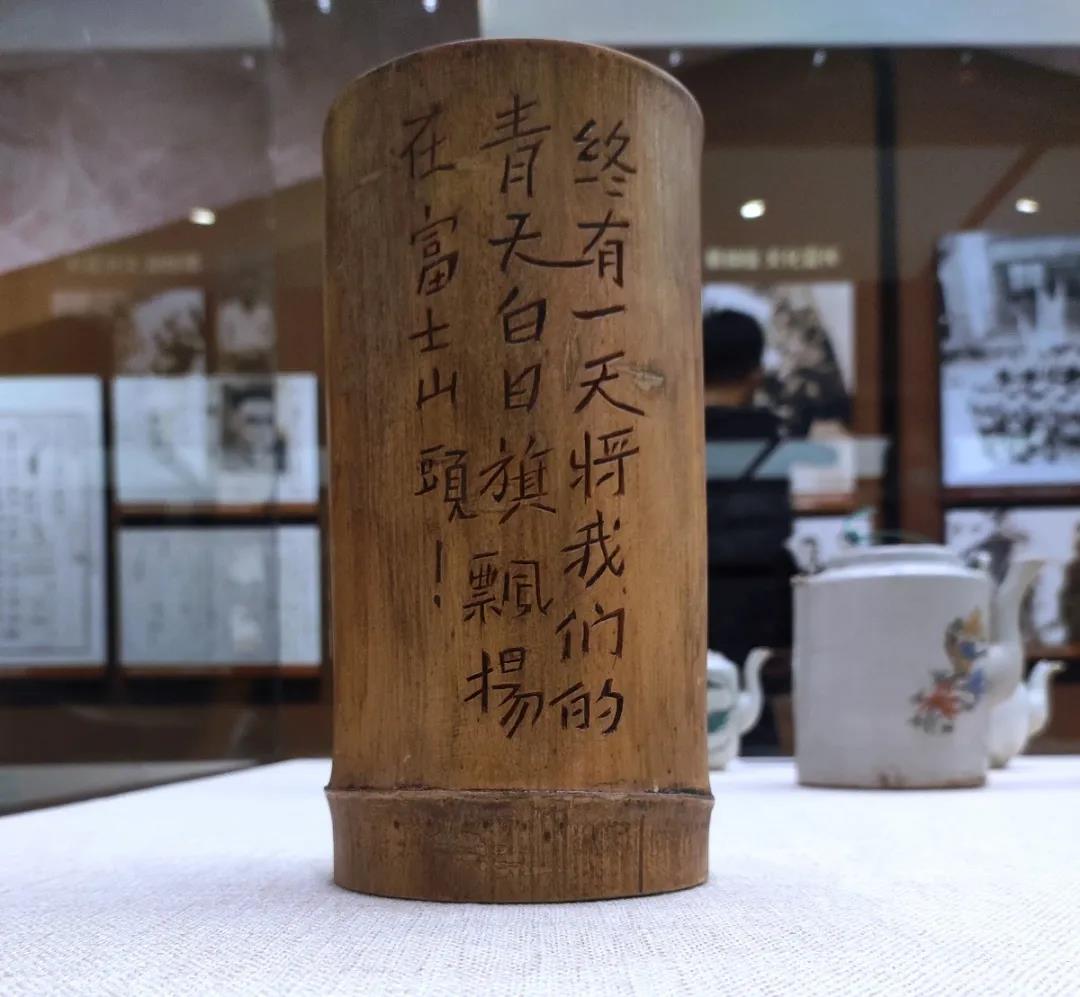 终有一天将我们的
青天白日旗飘揚
在富士山頭！